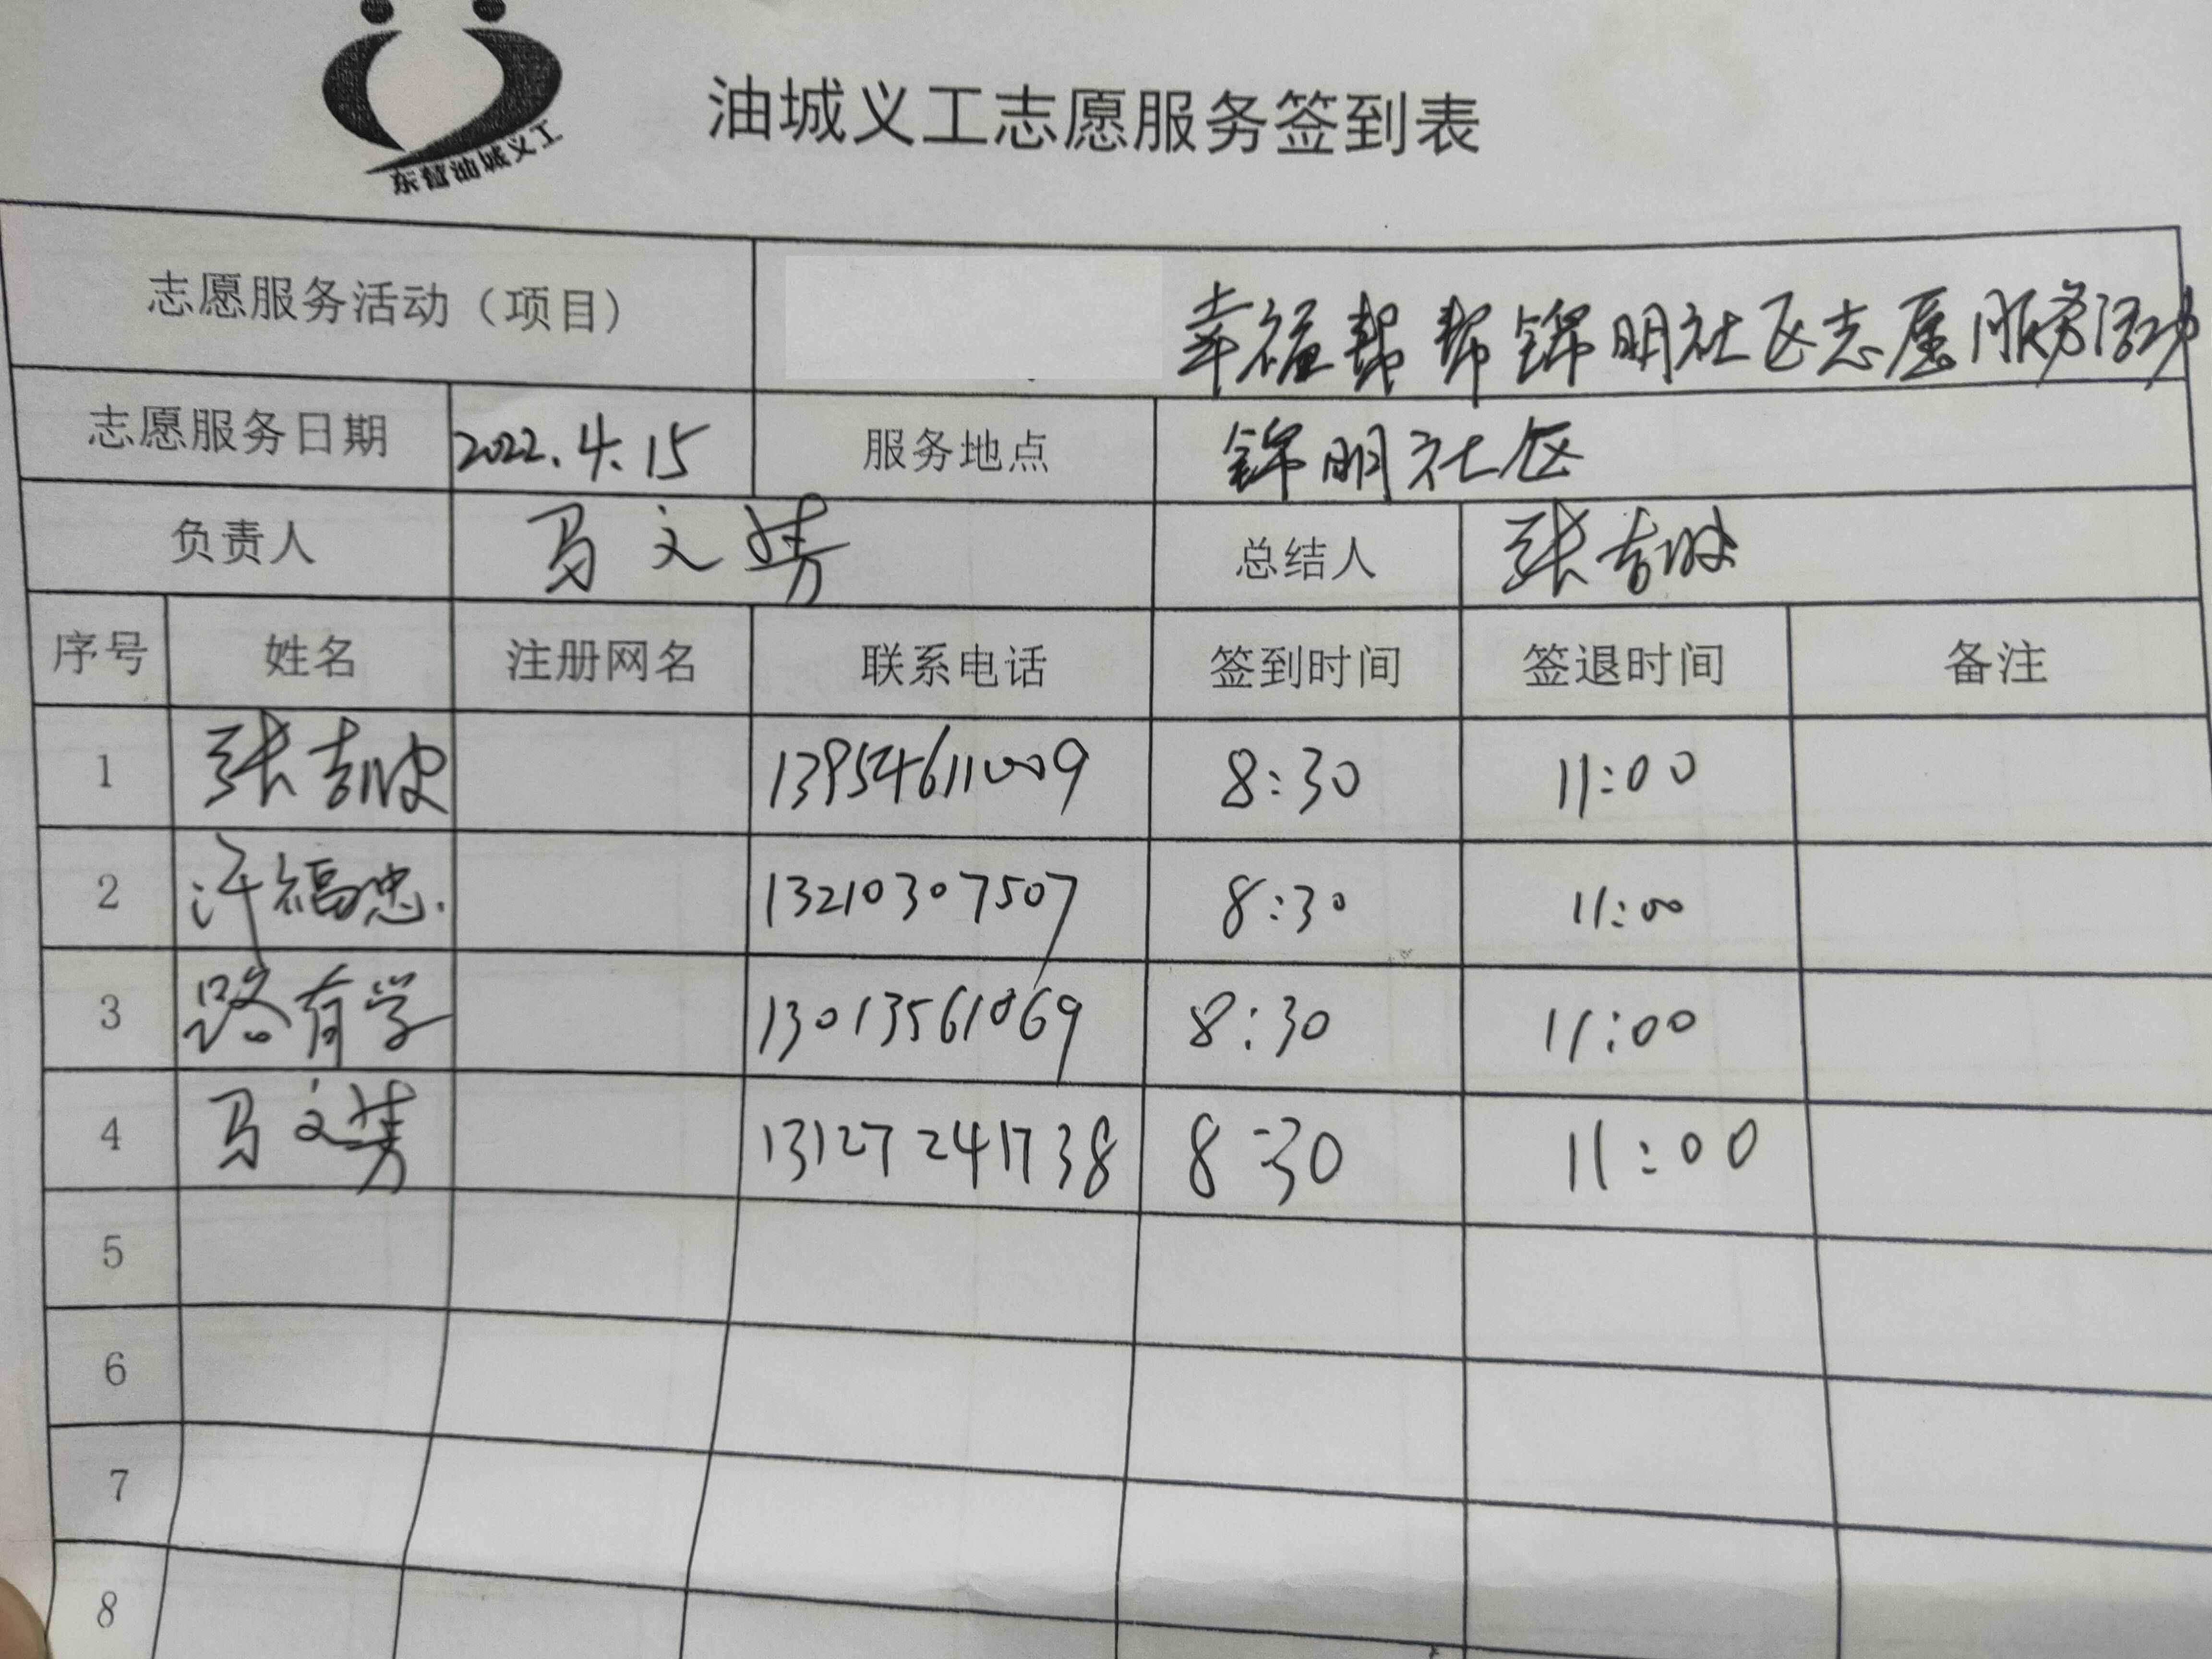 东营油城义工
油城义工志愿服务签到表
志愿服务活动（项目） 幸福帮帮锦明社区志愿服务活动
志愿服务日期 2022.4.15 服务地点 锦明社区
负责人 马文 总结人 张吉波
序号 姓名 注册网名 联系电话 签到时间 签退时间 备注
1 张吉波 13954611009 8:30 11:00
2 许福忠 13210307507 8:30 11:00
3 路有学 13013561069 8:30 11:00
4 马文 13127241738 8:30 11:00
5
6
7
8